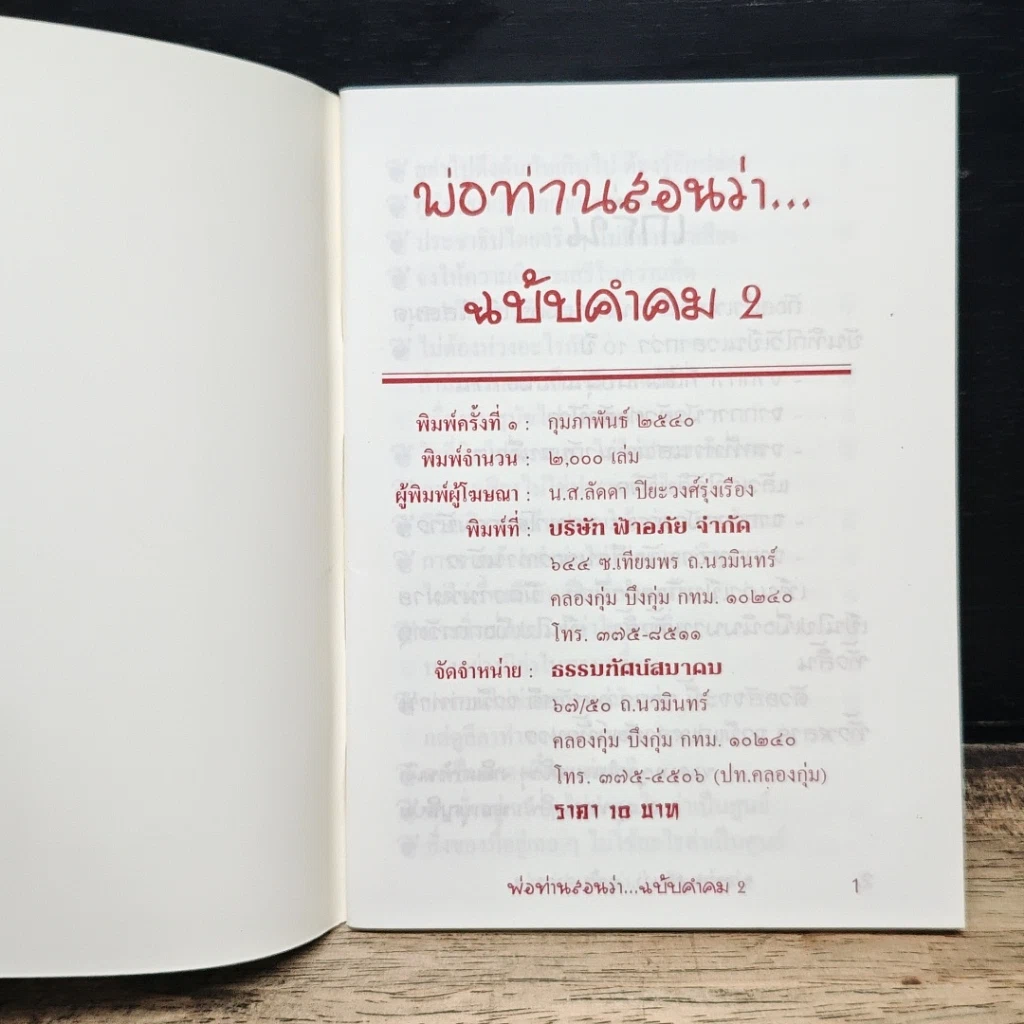 พ่อท่านสอนว่า...
ฉบับคำคม 2
พิมพ์ครั้งที่ ๑ : กุมภาพันธ์ ๒๕๔๐
พิมพ์จำนวน : ๒,๐๐๐ เล่ม
ผู้พิมพ์ผู้โฆษณา : น.ส.ลัดดา ปิยะวงศ์รุ่งเรือง
พิมพ์ที่ : บริษัท ฟ้าอภัย จำกัด
๖๔๔ ซ.เทียมพร ถ.นวมินทร์
คลองกุ่ม บึงกุ่ม กทม. ๑๐๒๔๐
โทร. ๓๗๕-๘๕๑๑
จัดจำหน่าย : ธรรมทัศน์สมาคม
๖๗/๕๐ ถ.นวมินทร์
คลองกุ่ม บึงกุ่ม กทม. ๑๐๒๔๐
โทร. ๓๗๕-๔๕๐๖ (ปท.คลองกุ่ม)
ราคา ๑๐ บาท
พ่อท่านสอนว่า...ฉบับคำคม 2 1